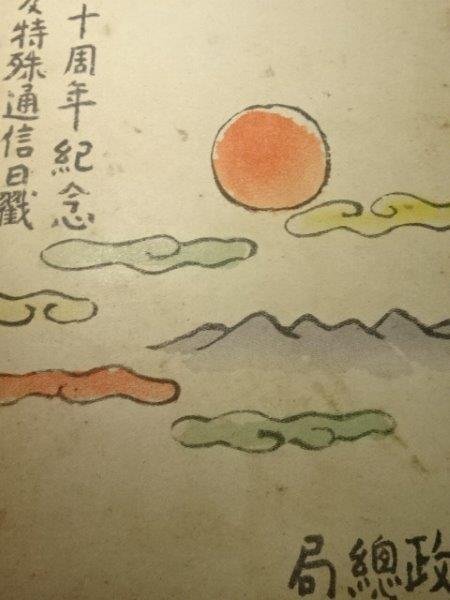 十周年紀念
特殊通信日戳
政總局